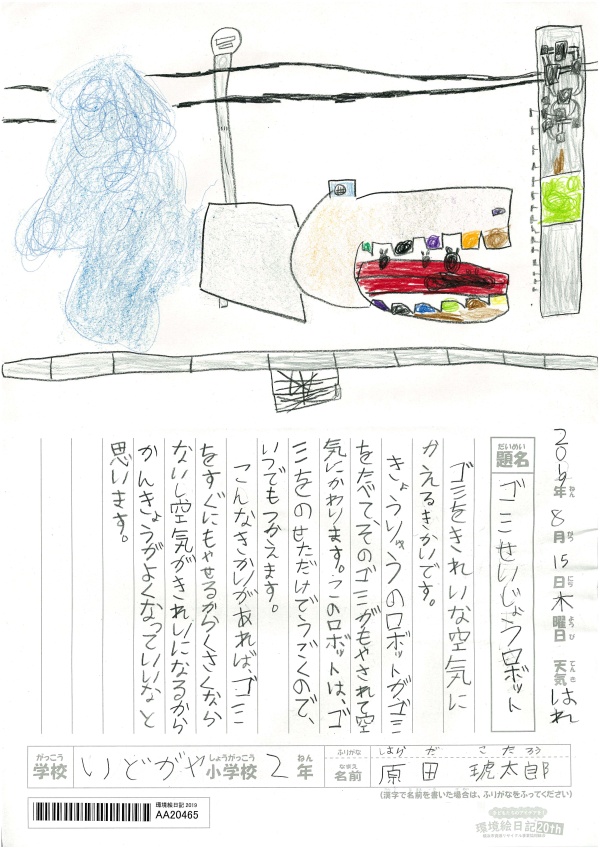 2019年ねん8月がつ15日にち木曜日ようび 天気てんき はれ
だいめい
題名
ゴミせいじょうロボット
ゴミをきれいな空気に
かえるきかいです。
きょうりゅうのロボットがゴミ
をたべて、そのゴミがもやされて空
気にかわります。このロボットは、ゴ
ミをのせただけでうごくので、
いつでもつかえます。
こんなきかいがあれば、ゴミ
をすぐにもやせるからくさくなら
ないし空気がきれいになるから
かんきょうがよくなっていいなと
思います。
がっこう
学校
いどがや
しょうがっこう
小学校
2
ねん
年
ふりがな
はら だ こたろう
なまえ
名前
原田 琥太郎
(漢字で名前を書いた場合は、ふりがなをふってください)
環境絵日記 2019
AA20465
環境絵日記20th